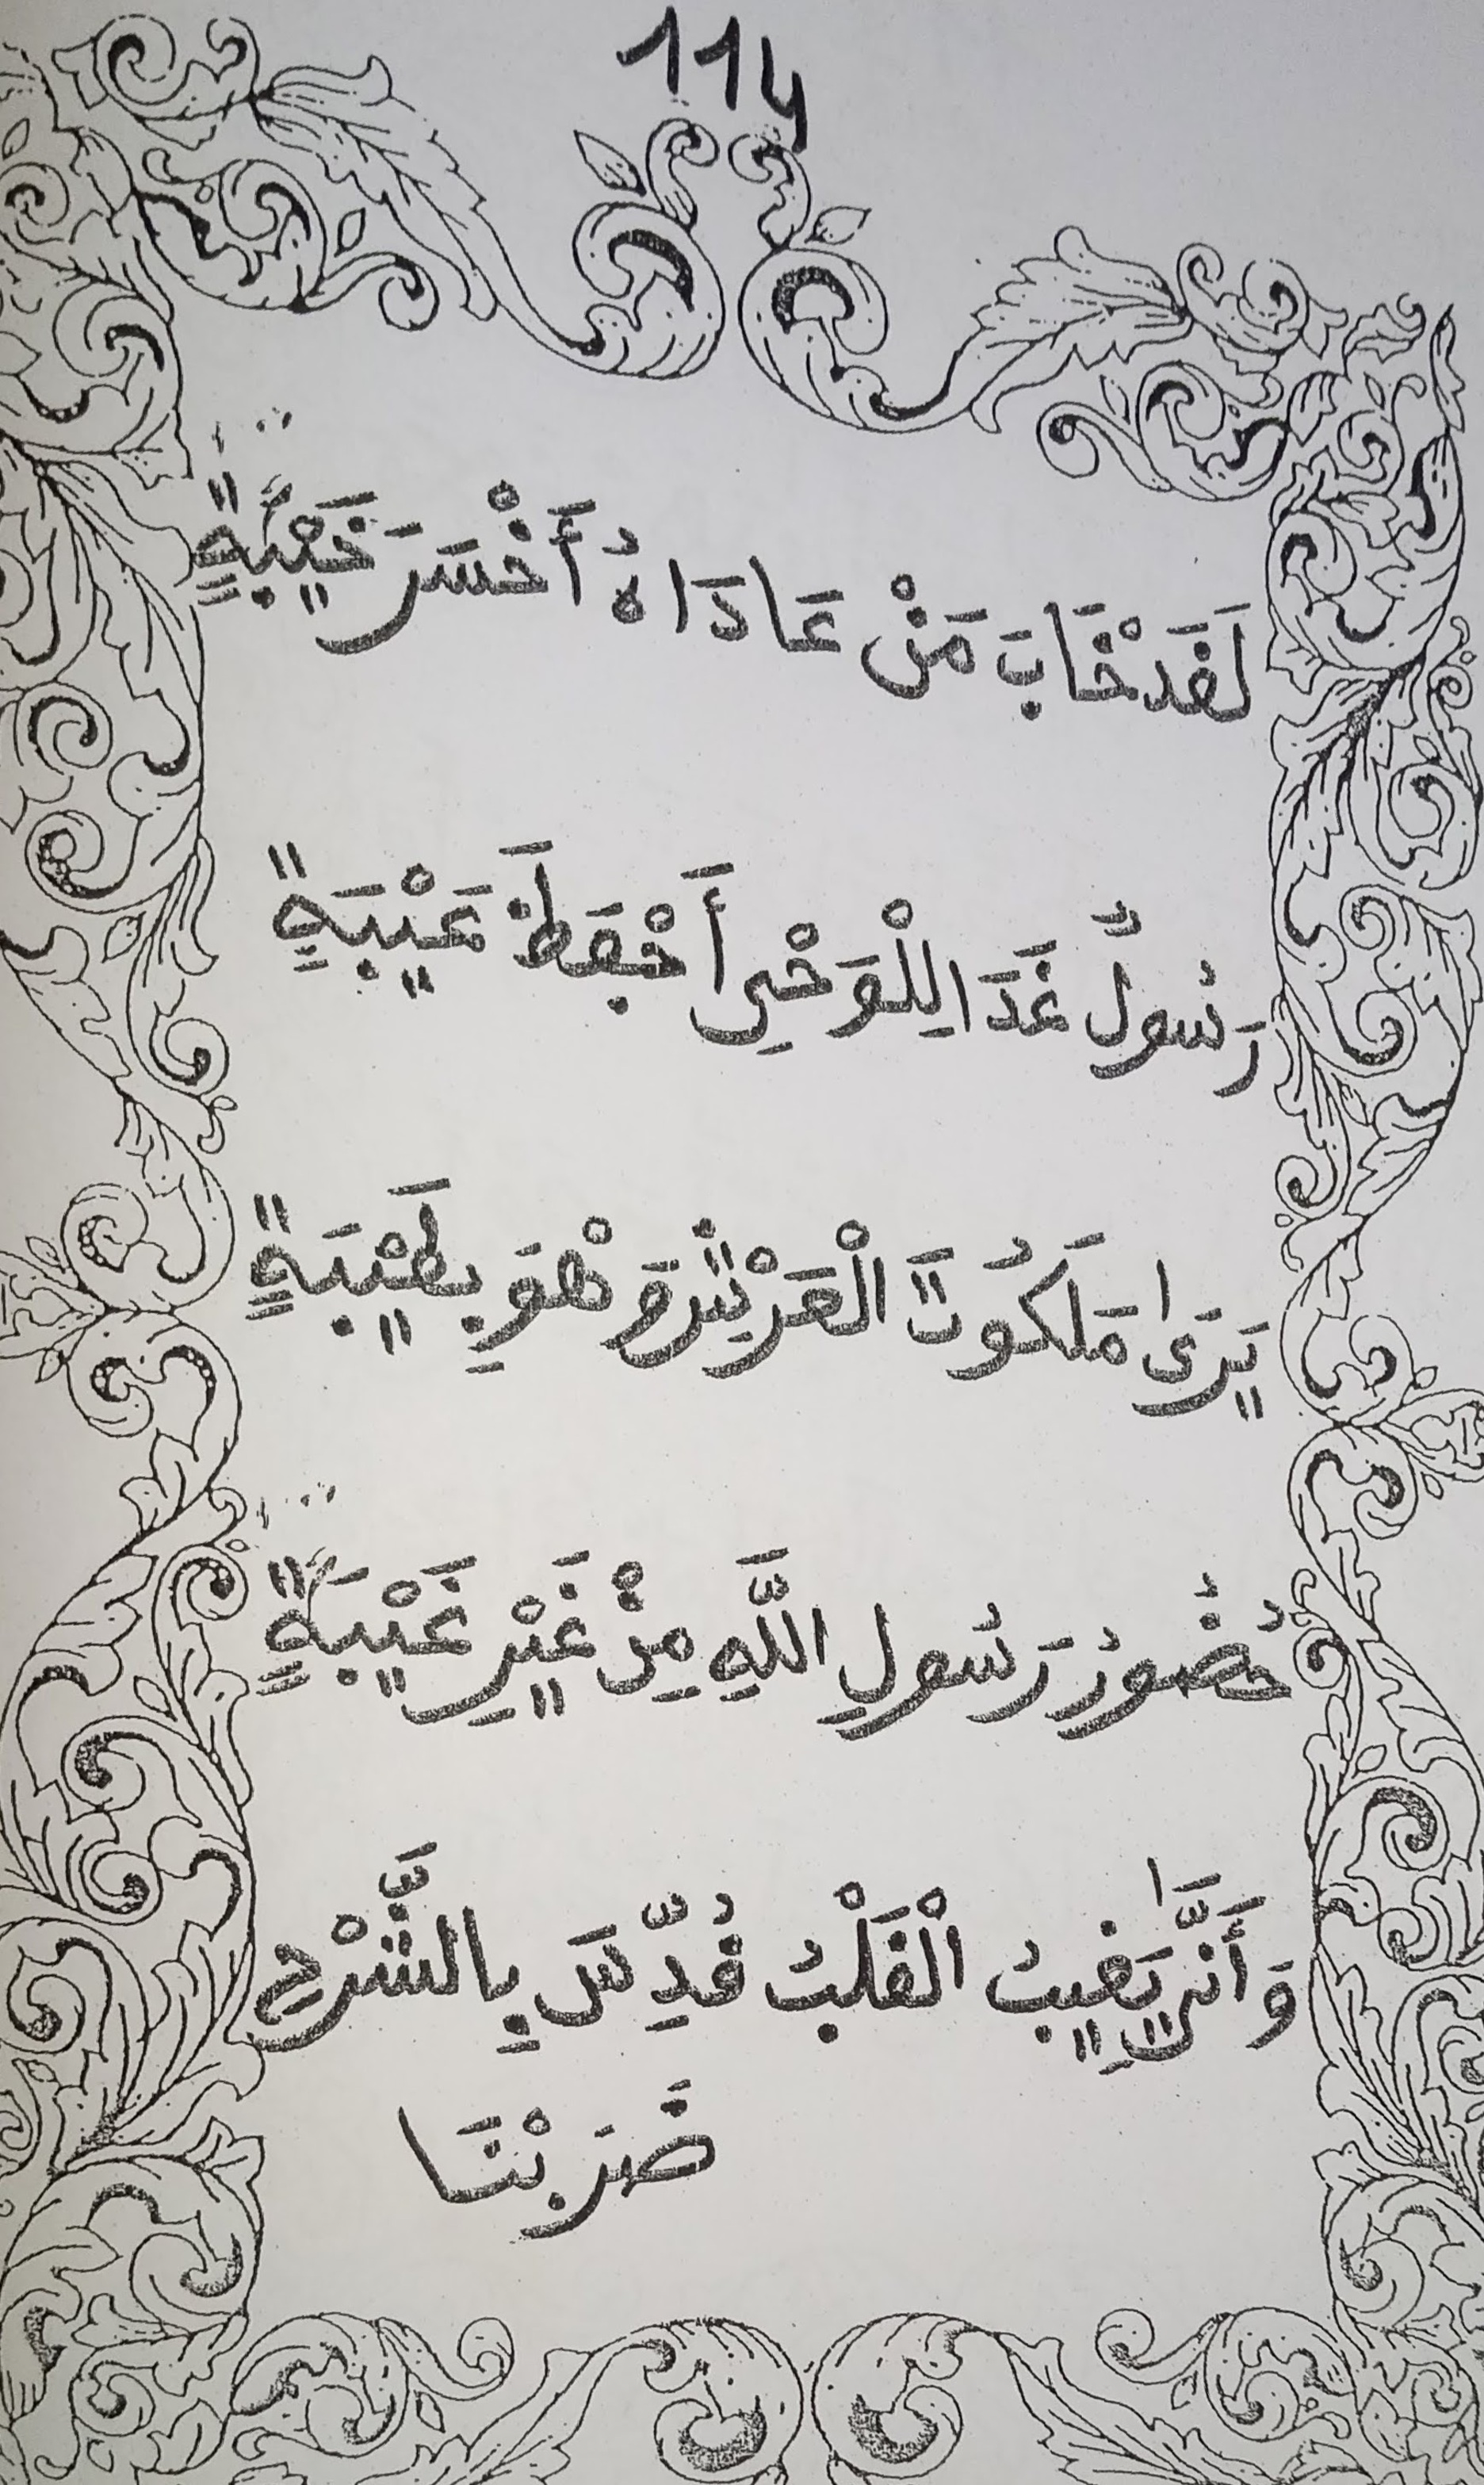 114
لَقَدْ خَابَ مَنْ عَادَاهُ أَخْسَرَ خَيْبَةٍ
رَسُولٌ غَدَا لِلْوَحْيِ أَحْفَظَ عَيْبَةٍ
يَرَىٰ مَلَكُوتَ الْعَرْشِ وَهْوَ بِطَيْبَةٍ
حُضُورُ رَسُولِ اللَّهِ مِنْ غَيْرِ غَيْبَةٍ
وَأَنَّىٰ يَغِيبُ الْقَلْبُ قُدِّسَ بِالشَّرْحِ
ضَرَبْنَا